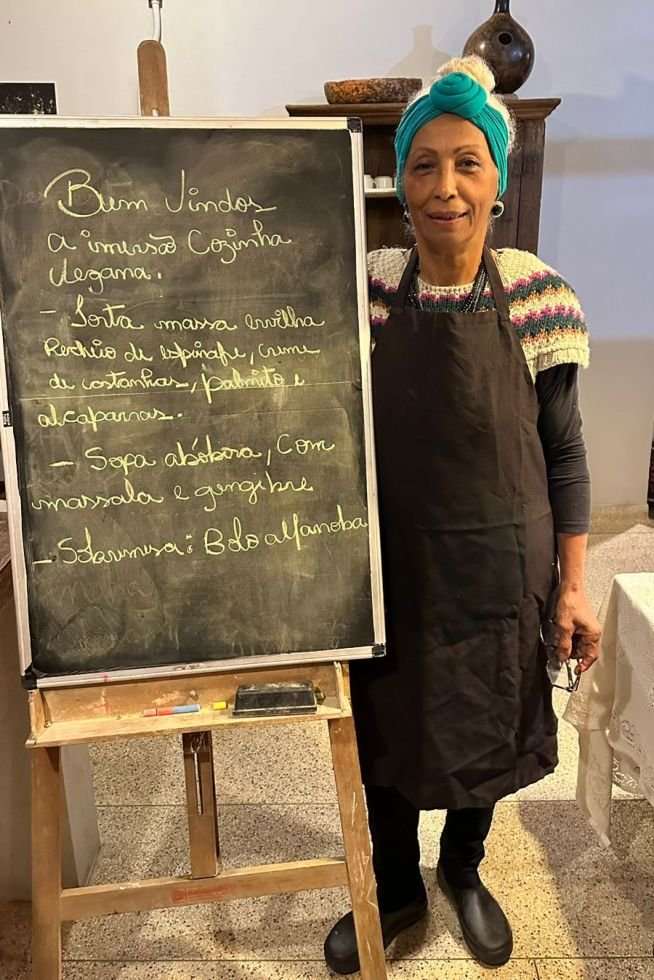 Bem Vindos
a imersão Cozinha
Vegana.
- Torta massa ervilha
Recheio de espinafre, creme
de castanhas, palmito e
alcaparras.
- Sopa abóbora, com
massala e gengibre
- Sobremesa: Bolo alfarroba